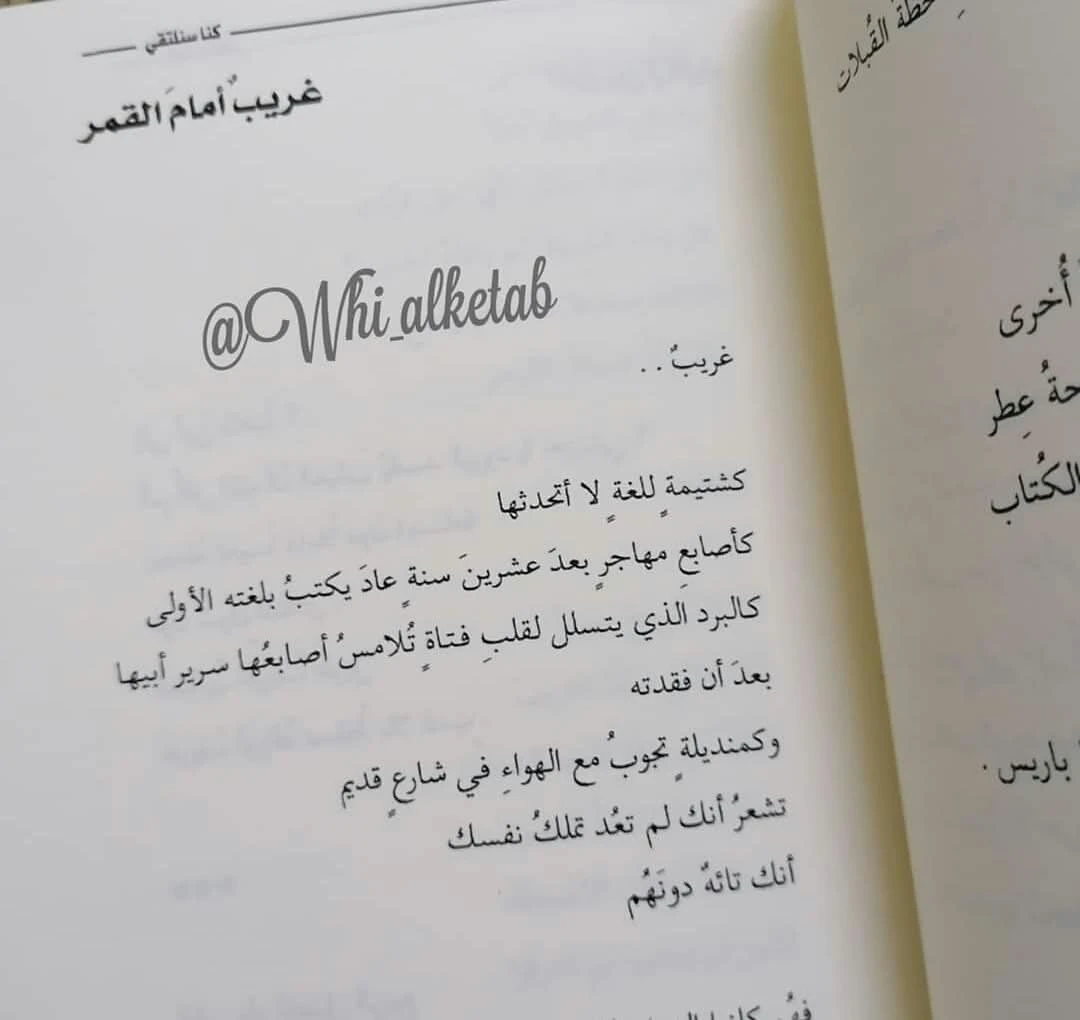 كنا سنلتقي
غريبٌ أمامَ القمر
@Whi_alketab
غريبٌ . .
كشتيمةٍ للغةٍ لا أتحدثها
كأصابعِ مهاجرٍ بعدَ عشرينَ سنةٍ عادَ يكتبُ بلغته الأولى
كالبرد الذي يتسلل لقلبِ فتاةٍ تُلامسُ أصابعُها سرير أبيها
بعدَ أن فقدته
وكمنديلةٍ تجوبُ مع الهواءِ في شارعٍ قديم
تشعرُ أنك لم تعُد تملكُ نفسك
أنك تائهٌ دونَهُم
القُبلات
أُخرى
عِطر
الكُتاب
باريس .